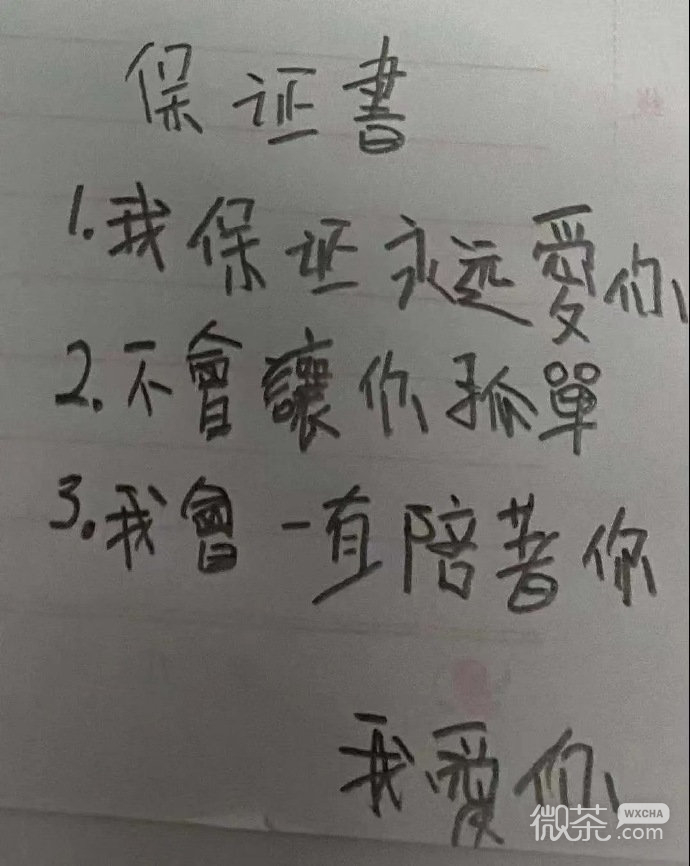 保证書
1.我保证永远愛你
2.不會讓你孤單
3.我會一直陪著你
我愛你
微茶 WXCHA
.com